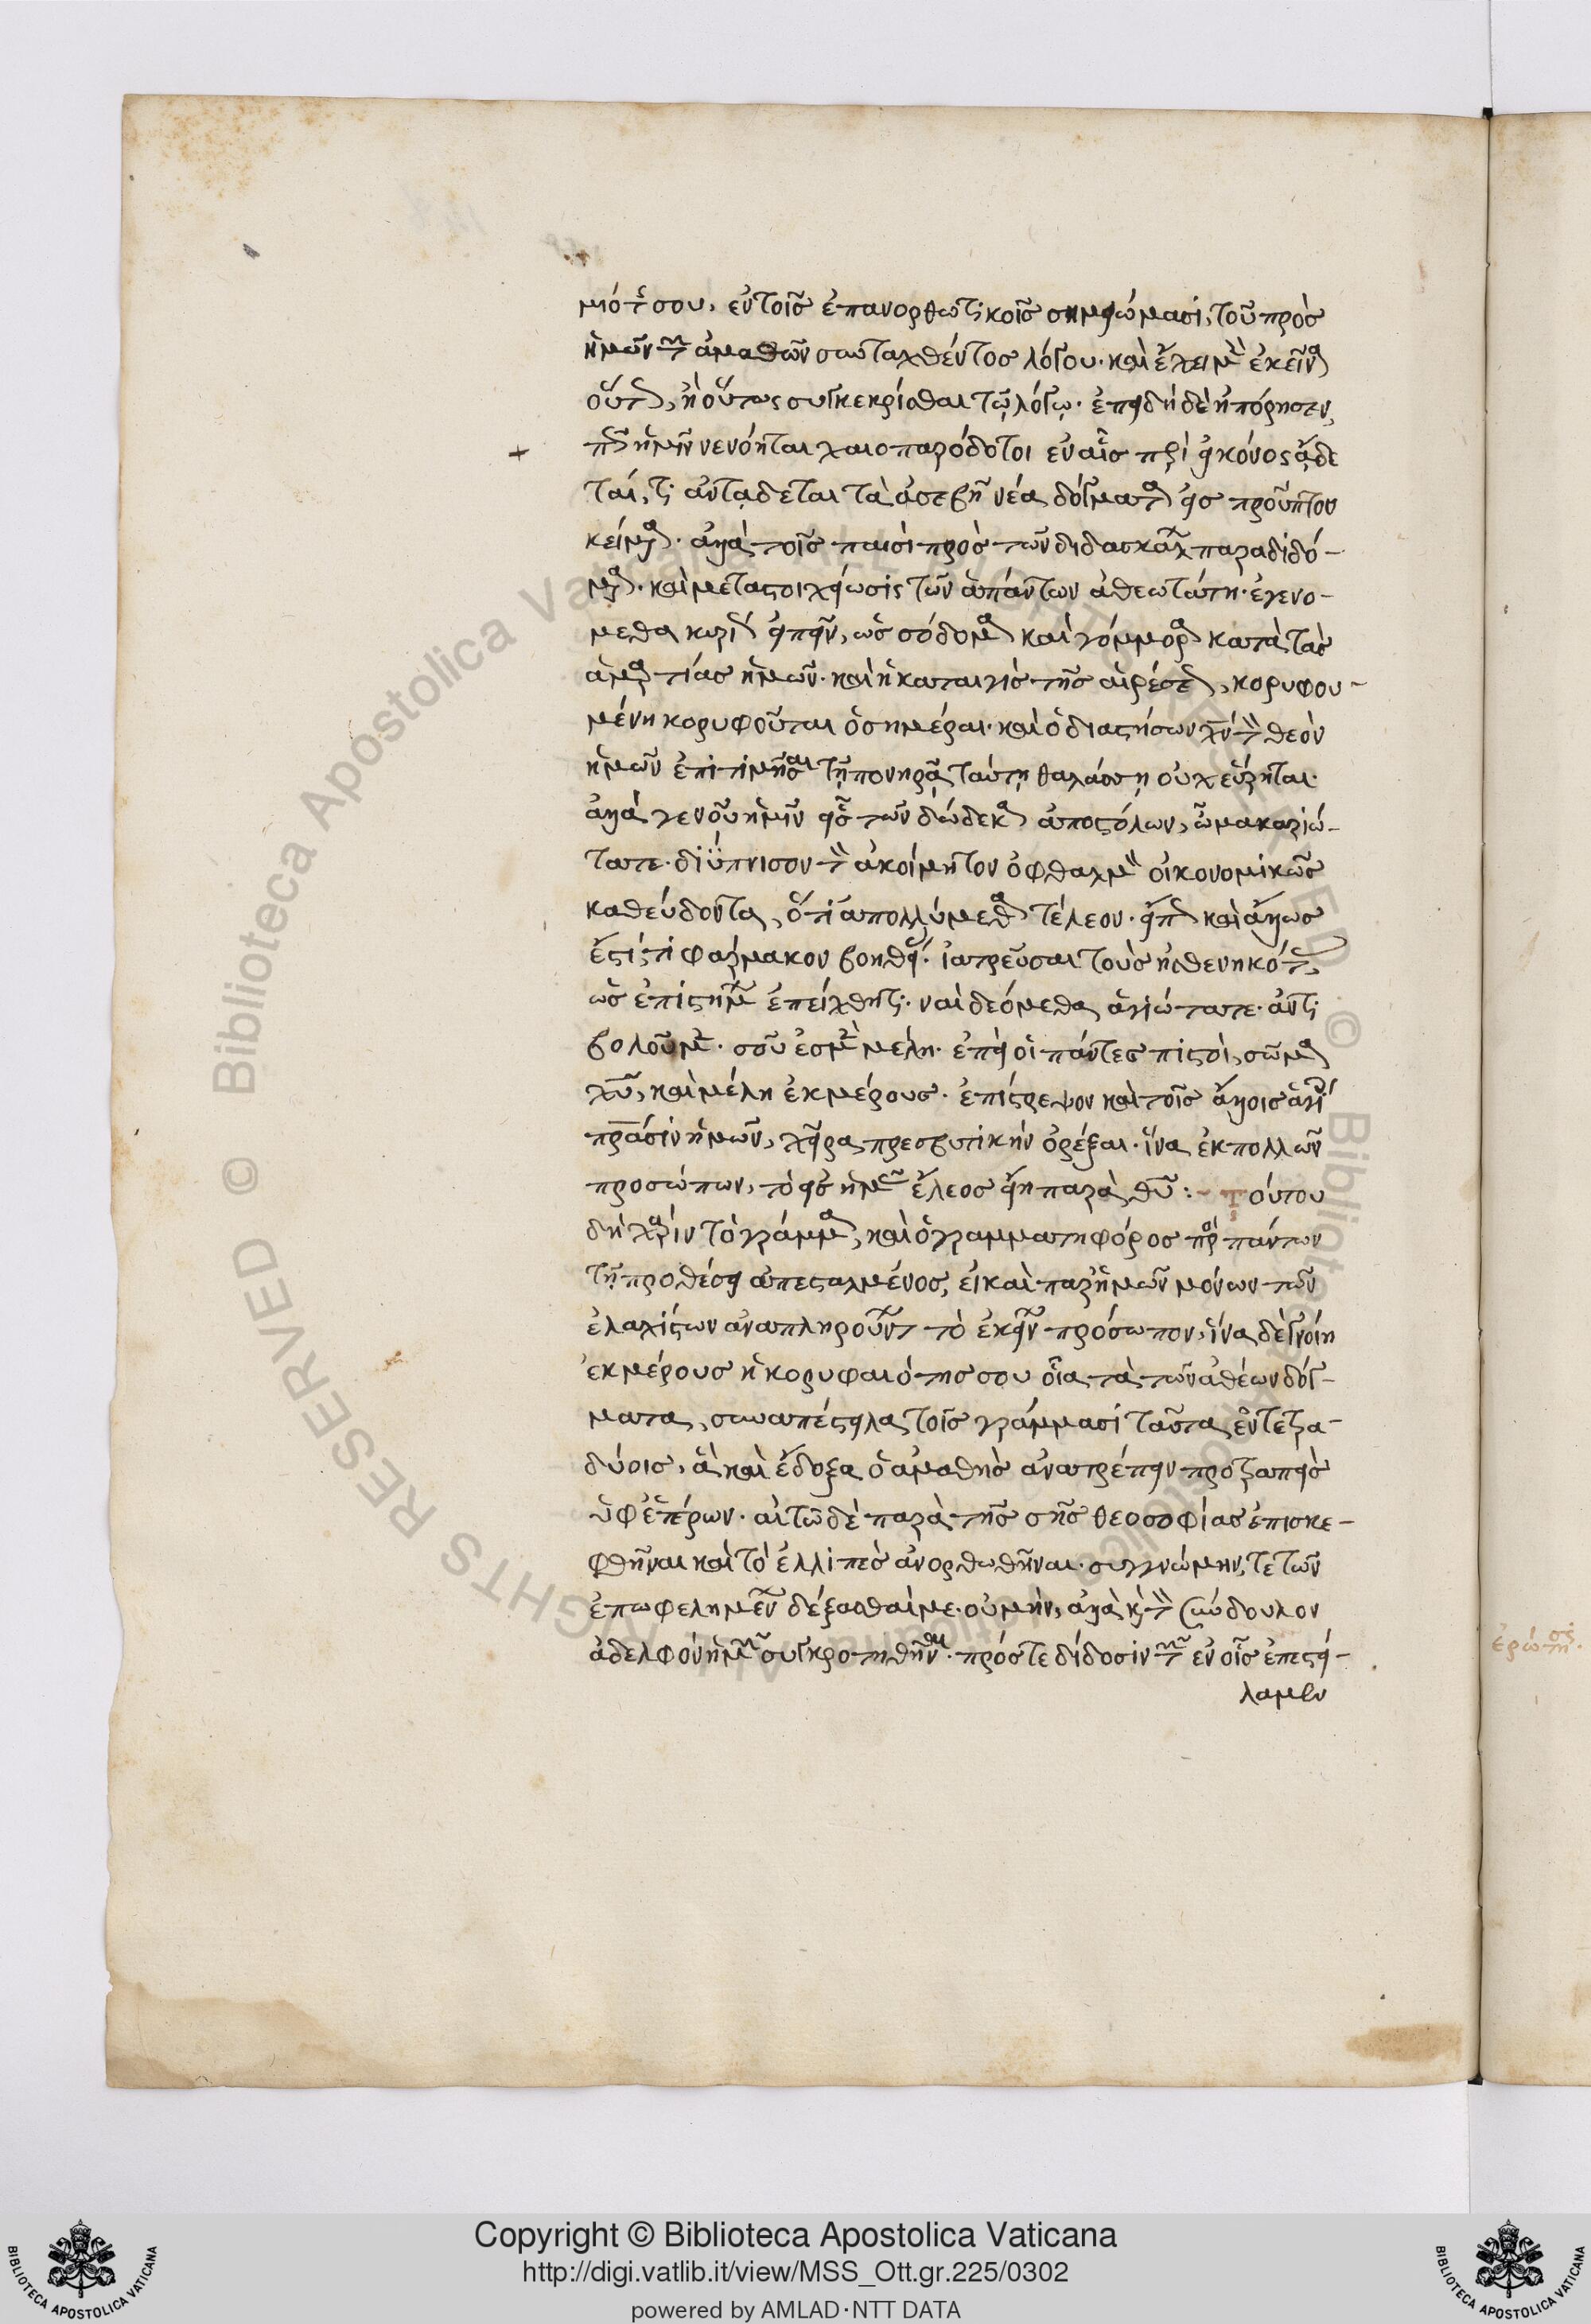 μιότ σου, ἐν τοῖς ἐπανορθωτικοῖς σημειώμασι, τοῦ πρὸς
ἡμῶν τῶν ἀμαθῶν συνταχθέντος λόγου. καὶ ἔχειν μὲν ἐκεῖνα
οὕτω, ἢ οὕτως συγκεκρίσθαι τῷ λόγῳ. ἐπειδὴ δὲ ἠπόρησεν,
ἡμῖν νενόηται χαιοπαρόδοτοι ἐν αἷς περὶ εἰκόνος ᾄδε
ται, τί ἀντᾴδεται τὰ ἀσεβῆ νέα δόγματα εἰς προὖπτον
κείμενα. ἀλλὰ τοῖς παισὶ πρὸς τῶν διδασκάλων παραδιδό-
μενα. καὶ μεταστοιχείωσις τῶν ἁπάντων ἀθεωτάτη. ἐγενό-
μεθα κυρίως εἰπεῖν, ὡς σόδομα καὶ γόμορρα κατὰ τὰς
ἁμαρτίας ἡμῶν. καὶ ἡ καταιγὶς τῆς αἱρέσεως, κορυφου-
μένη κορυφοῦται ὁσημέραι. καὶ ὁ διαστήσων χν τὸν θεὸν
ἡμῶν ἐπιτιμῆσαι τῇ πονηρᾷ ταύτῃ θαλάσσῃ οὐχ εὕρηται.
ἀλλὰ γενοῦ ἡμῖν εἷς τῶν δώδεκα ἀποστόλων, ὦ μακαριώ-
τατε. διΰπνισον τὸν ἀκοίμητον ὀφθαλμὸν οἰκονομικῶς
καθεύδοντα, ὅτι ἀπολλύμεθα τέλεον. εἴπερ καὶ ἄλλως
ἔστί τι φάρμακον βοηθεῖν. ἰατρεῦσαι τοὺς ἠσθενηκότας,
ὡς ἐπιστήμων ἐπείχθητι. ναὶ δεόμεθα ἁγιώτατε. ἀντι
βολοῦμεν. σοῦ ἐσμὲν μέλη. ἐπεὶ οἱ πάντες πιστοὶ, σῶμα
χυ, καὶ μέλη ἐκ μέρους. ἐπίστρεψον καὶ τοῖς ἄλλοις ἁγίοις
πράσιν ἡμῶν, χεῖρα πρεσβυτικὴν ὀρέξαι. ἵνα ἐκ πολλῶν
προσώπων, τὸ εἰς ἡμᾶς ἔλεος εἴη παρὰ θυ :- Τούτου
δὴ χάριν τὸ γράμμα, καὶ ὁ γραμματηφόρος πρὸ πάντων
τῇ προθέσει ἀπεσταλμένος, εἰ καὶ παρ' ἡμῶν μόνων τῶν
ἐλαχίστων ἀναπληρούντων τὸ ἐκείνων πρόσωπον, ἵνα δὲ γνοίη
ἐκ μέρους ἡ κορυφαιότης σου οἷα τὰ τῶν ἀθέων δόγ-
ματα, συναπέστειλα τοῖς γράμμασι ταῦτα ἐν τετρα-
δύοις, ἃ καὶ ἔδοξα ὁ ἀμαθὴς ἀνατρέπειν προτραπεὶς
ὑφ' ἑτέρων. αἰτῶ δὲ παρὰ τῆς σῆς θεοσοφίας ἐπισκε-
φθῆναι καὶ τὸ ἐλλιπὲς ἀνορθωθῆναι. συγγνώμην, τε τῶν
ἐπωφελημένων δέξασθαί με. οὐ μὴν, ἀλλὰ καὶ τὸν σύνδουλον
ἀδελφὸν ἡμῶν συγκροτηθῆναι. πρός τε δίδοσιν τῶν ἐν οἷς ἐπεστεί-
λαμεν